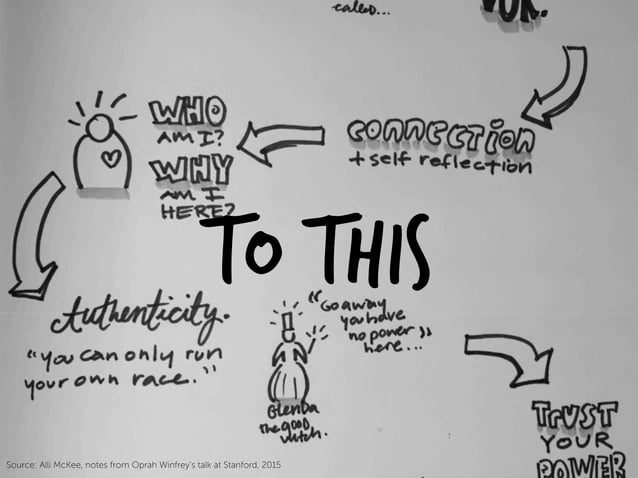 called...
CONNECTION
+ self reflection
WHO
AM I?
WHY
AM I
HERE?
TO THIS
Authenticity.
"you can only run
your own race."
"Go away
you have
no power
here..."
Glenda
the good
witch.
TRUST
YOUR
POWER
Source: Alli McKee, notes from Oprah Winfrey's talk at Stanford, 2015